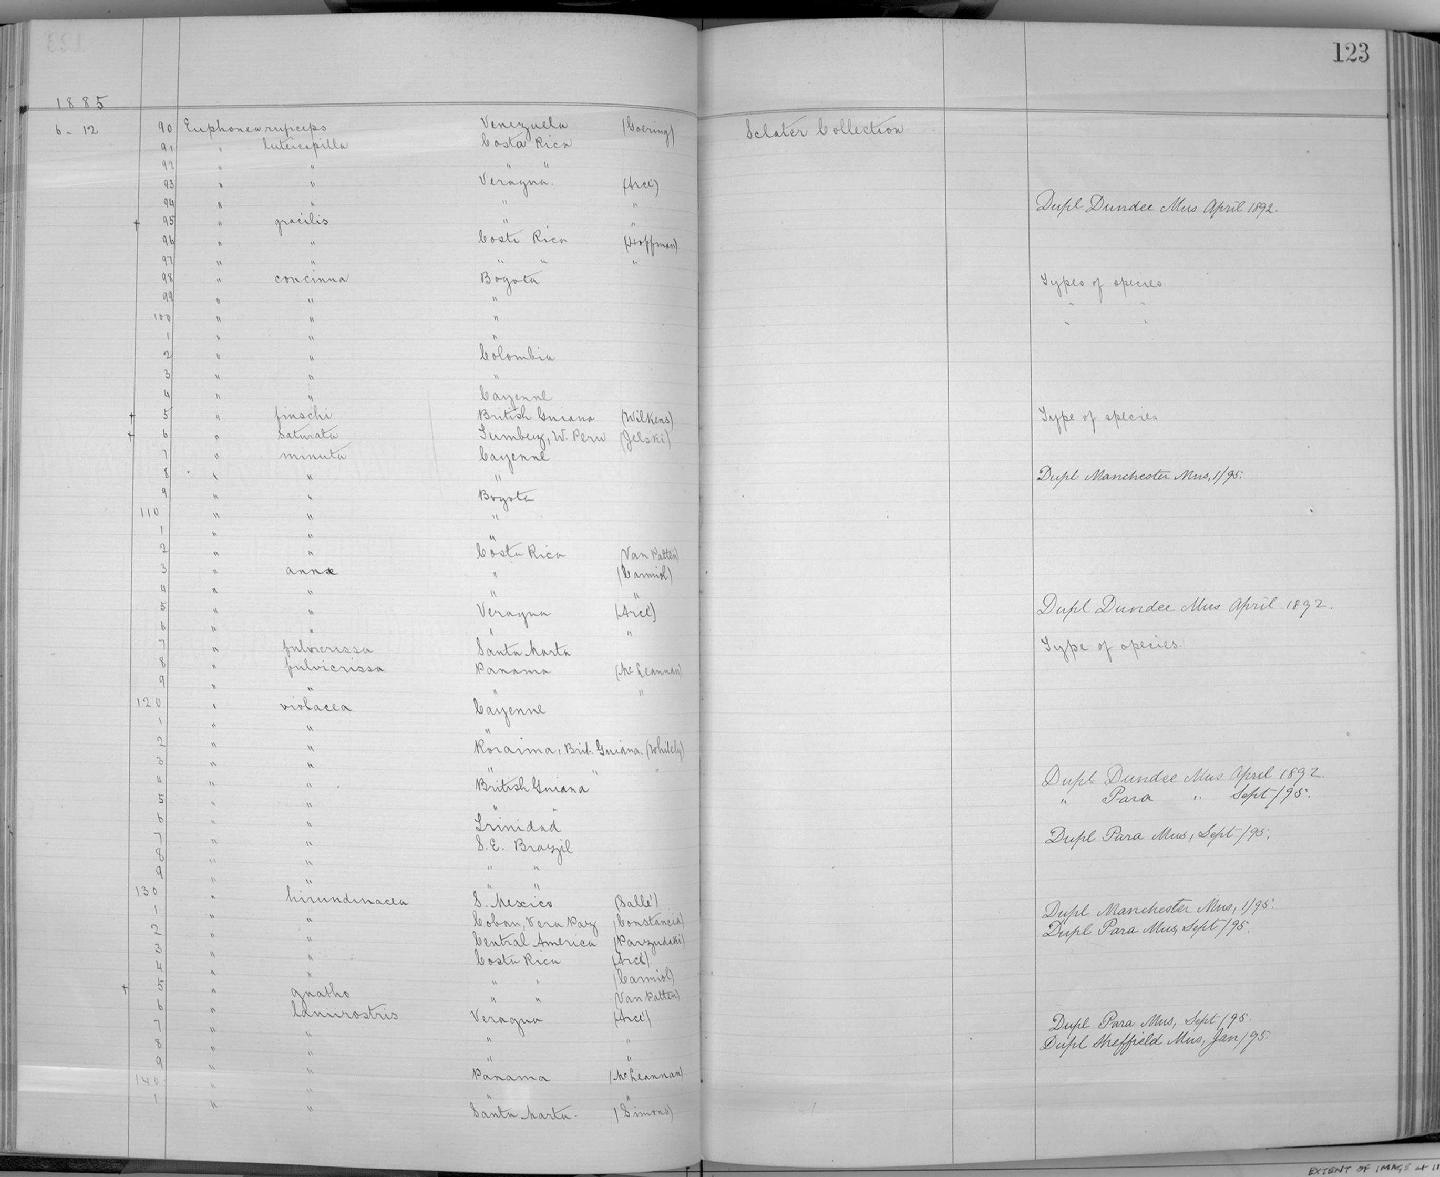 123
1885
6-12 90 Euphonea ruficeps Venezuela (Goering) Sclater Collection
91 " luteicapilla Costa Rica
92 " " " "
93 " " Veragua (Arcé)
94 " " " " Dupl Dundee Mus April 1892.
† 95 " gracilis " "
96 " " Costa Rica (Hoffman)
97 " " " " "
98 " concinna Bogota Types of species
99 " " " " "
100 " " " " "
1 " " "
2 " " Colombia
3 " " "
4 " " Cayenne
† 5 " finschi British Guiana (Wilkens) Type of species
† 6 " saturata Tumbez, W. Peru (Jelski)
7 " minuta Cayenne
8 " " " Dupl Manchester Mus, 1/95.
9 " " Bogota
110 " " "
1 " " "
2 " " Costa Rica Van Patten
3 " annæ " (Carmiol)
4 " " " "
5 " " Veragua (Arcé) Dupl Dundee Mus April 1892.
6 " " " "
7 " fulvicrissa Santa Marta Type of species
8 " fulvicrissa Panama (McLeannan)
9 " " " "
120 " violacea Cayenne
1 " " "
2 " " Roraima, Brit. Guiana. (Whitely)
3 " " " " "
4 " " British Guiana Dupl Dundee Mus April 1892.
5 " " " " " Para " Sept/95.
6 " " Trinidad
7 " " S.E. Brazil Dupl Para Mus, Sept/95.
8 " " " "
9 " " " "
130 " hirundinacea S. Mexico (Sallé)
1 " " Coban, Vera Paz (Constancia) Dupl Manchester Mus, 1/95.
2 " " Central America (Parzudaki) Dupl Para Mus, Sept/95.
3 " " Costa Rica (Arcé)
4 " " " " (Carmiol)
† 5 " gnatho " " (Van Patten)
6 " lanirostris Veragua (Arcé)
7 " " " " Dupl Para Mus, Sept/95.
8 " " " " Dupl Sheffield Mus, Jan/95.
9 " " Panama (McLeannan)
140 " " " "
1 " " Santa Marta. (Simons)
EXTENT OF IMAGE